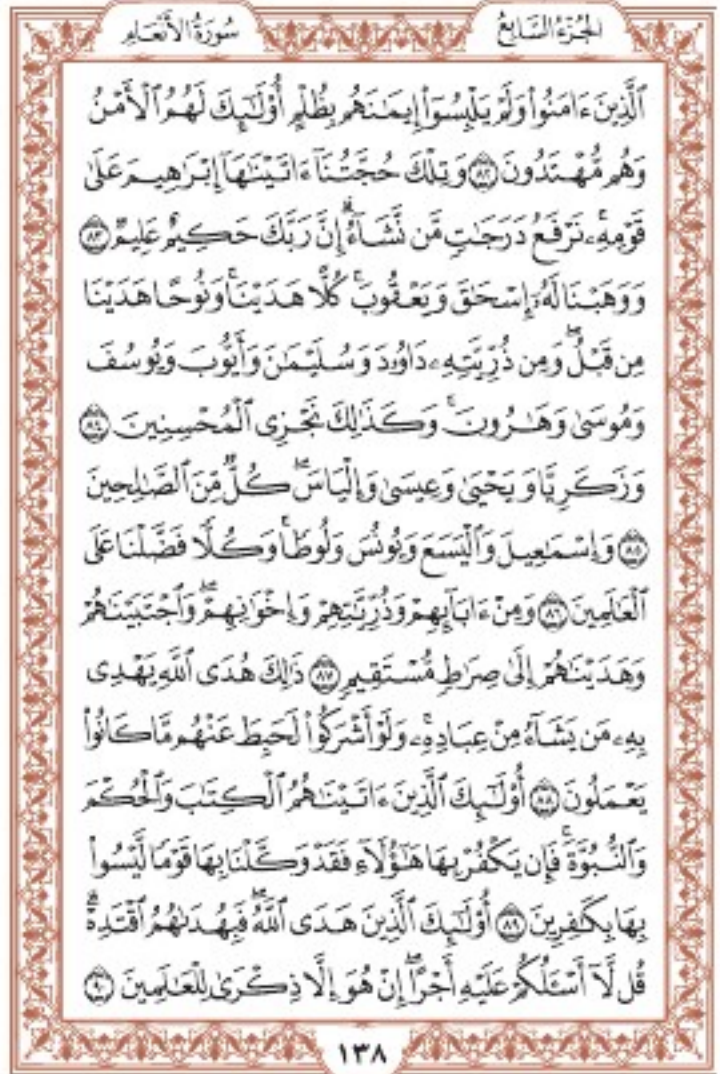 الجُزءُ السَّابِعُ
سُورَةُ الأَنْعَامِ
ٱلَّذِينَ ءَامَنُواْ وَلَمْ يَلْبِسُوٓاْ إِيمَٰنَهُم بِظُلْمٍ أُوْلَٰٓئِكَ لَهُمُ ٱلْأَمْنُ
وَهُم مُّهْتَدُونَ ٨٢ وَتِلْكَ حُجَّتُنَآ ءَاتَيْنَٰهَآ إِبْرَٰهِيمَ عَلَىٰ
قَوْمِهِۦۚ نَرْفَعُ دَرَجَٰتٍ مَّن نَّشَآءُۗ إِنَّ رَبَّكَ حَكِيمٌ عَلِيمٌ ٨٣
وَوَهَبْنَا لَهُۥٓ إِسْحَٰقَ وَيَعْقُوبَۚ كُلًّا هَدَيْنَاۚ وَنُوحًا هَدَيْنَا
مِن قَبْلُۖ وَمِن ذُرِّيَّتِهِۦ دَاوُۥدَ وَسُلَيْمَٰنَ وَأَيُّوبَ وَيُوسُفَ
وَمُوسَىٰ وَهَٰرُونَۚ وَكَذَٰلِكَ نَجْزِى ٱلْمُحْسِنِينَ ٨٤
وَزَكَرِيَّا وَيَحْيَىٰ وَعِيسَىٰ وَإِلْيَاسَۖ كُلٌّ مِّنَ ٱلصَّٰلِحِينَ
٨٥ وَإِسْمَٰعِيلَ وَٱلْيَسَعَ وَيُونُسَ وَلُوطًاۚ وَكُلًّا فَضَّلْنَا عَلَى
ٱلْعَٰلَمِينَ ٨٦ وَمِنْ ءَابَآئِهِمْ وَذُرِّيَّٰتِهِمْ وَإِخْوَٰنِهِمْۖ وَٱجْتَبَيْنَٰهُمْ
وَهَدَيْنَٰهُمْ إِلَىٰ صِرَٰطٍ مُّسْتَقِيمٍ ٨٧ ذَٰلِكَ هُدَى ٱللَّهِ يَهْدِى
بِهِۦ مَن يَشَآءُ مِنْ عِبَادِهِۦۚ وَلَوْ أَشْرَكُواْ لَحَبِطَ عَنْهُم مَّا كَانُواْ
يَعْمَلُونَ ٨٨ أُوْلَٰٓئِكَ ٱلَّذِينَ ءَاتَيْنَٰهُمُ ٱلْكِتَٰبَ وَٱلْحُكْمَ
وَٱلنُّبُوَّةَۚ فَإِن يَكْفُرْ بِهَا هَٰٓؤُلَآءِ فَقَدْ وَكَّلْنَا بِهَا قَوْمًا لَّيْسُواْ
بِهَا بِكَٰفِرِينَ ٨٩ أُوْلَٰٓئِكَ ٱلَّذِينَ هَدَى ٱللَّهُۖ فَبِهُدَىٰهُمُ ٱقْتَدِهْۗ
قُل لَّآ أَسْـَٔلُكُمْ عَلَيْهِ أَجْرًاۖ إِنْ هُوَ إِلَّا ذِكْرَىٰ لِلْعَٰلَمِينَ ٩٠
١٣٨